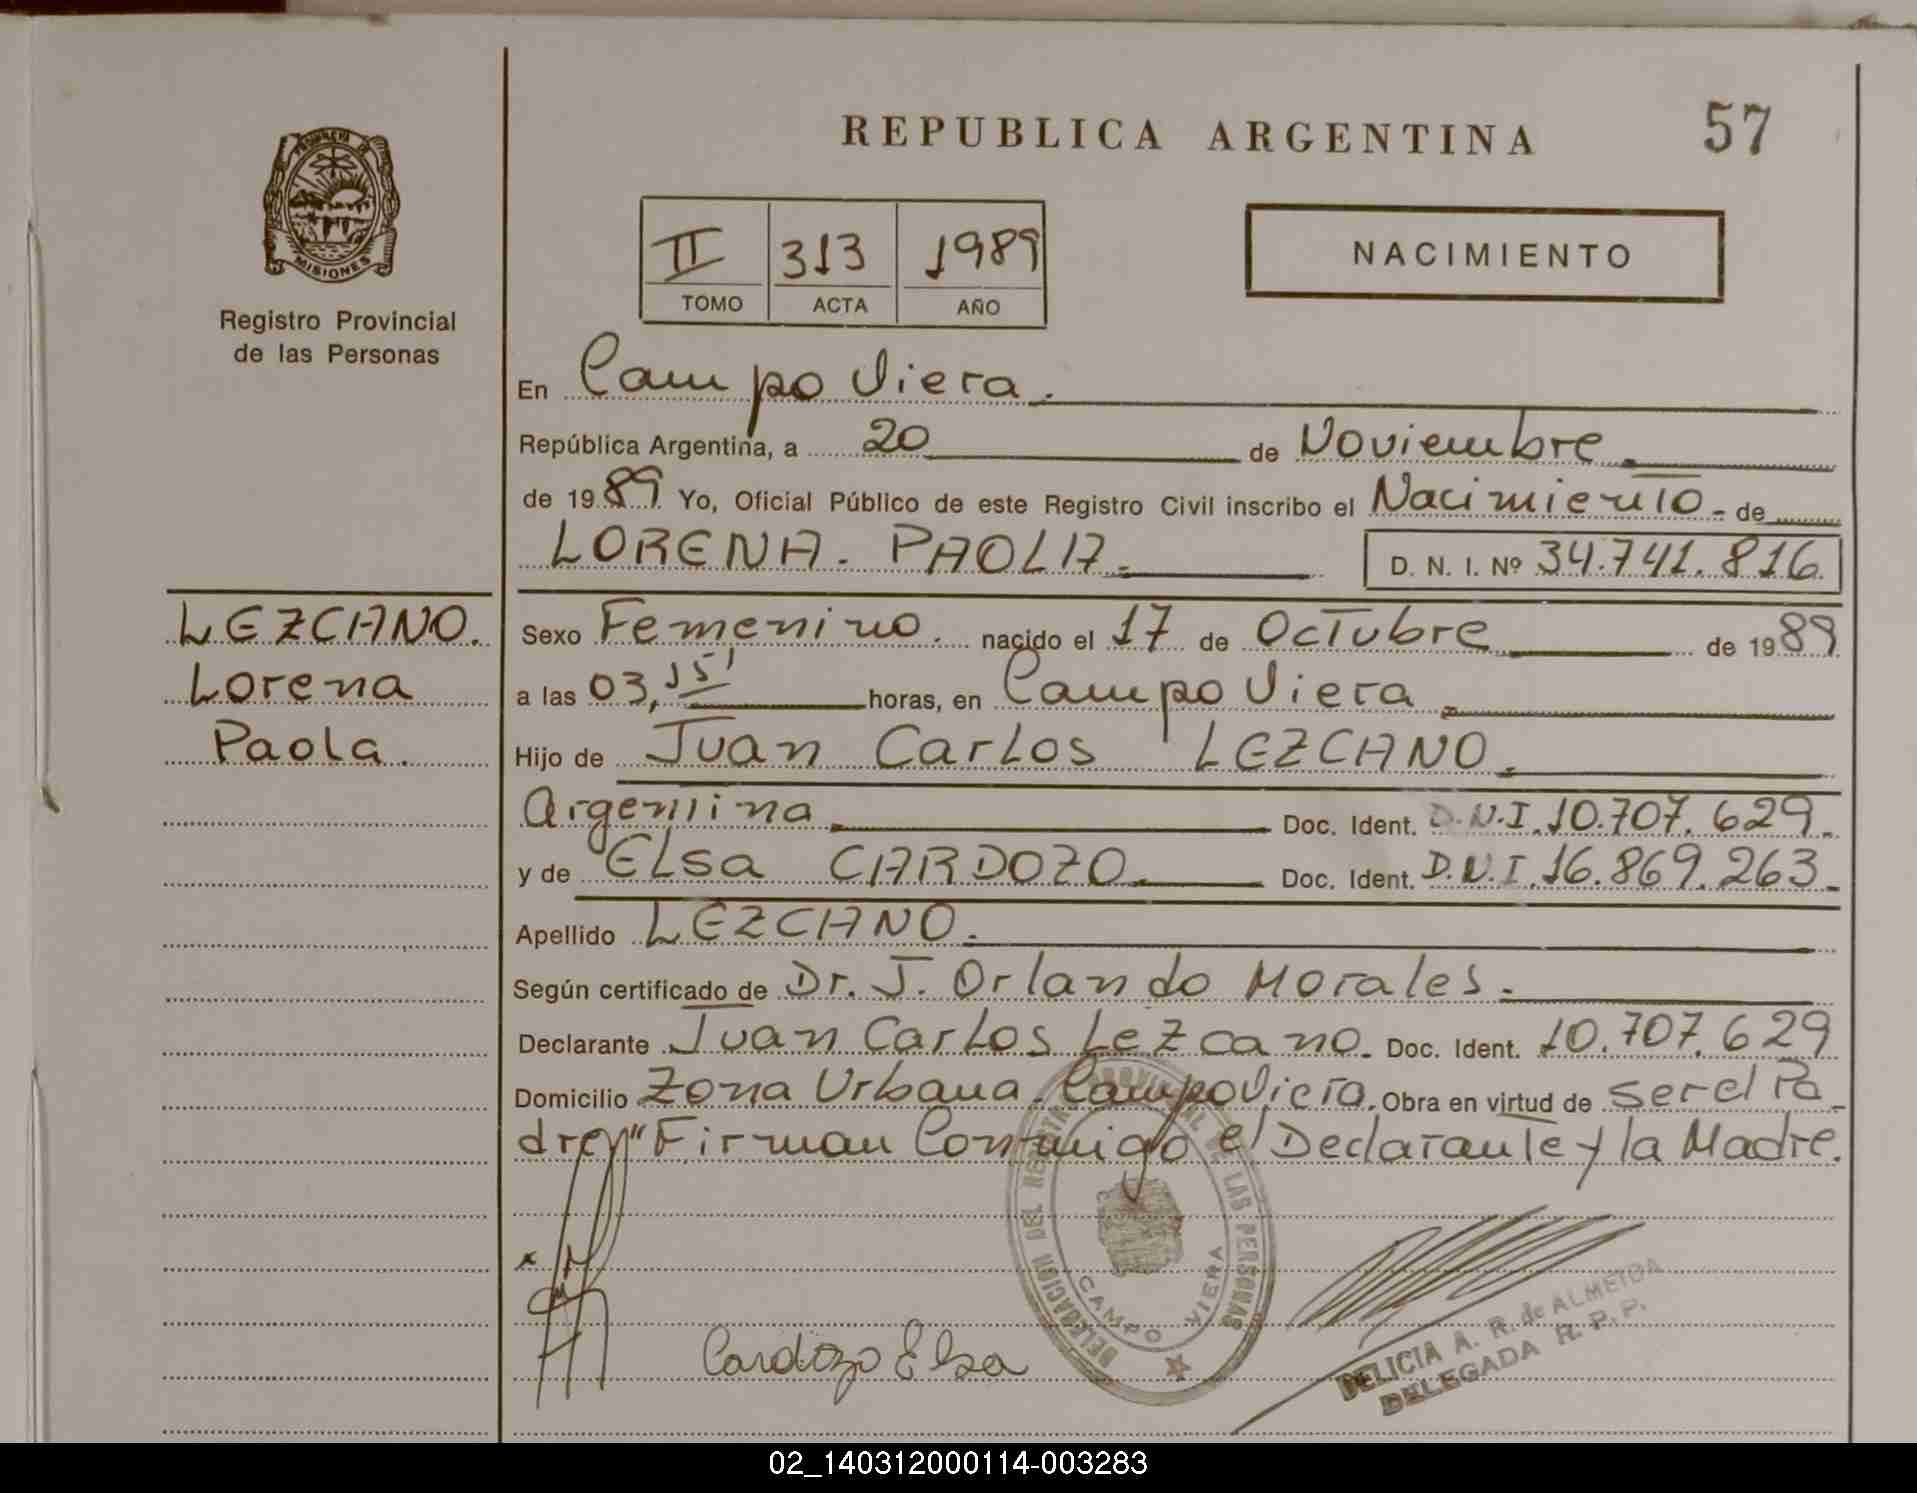 REPUBLICA ARGENTINA
57
PROVINCIA DE
MISIONES
Registro Provincial
de las Personas
II 313 1989
TOMO ACTA AÑO
NACIMIENTO
En Campo Viera.
República Argentina, a 20 de Noviembre
de 1989 Yo, Oficial Público de este Registro Civil inscribo el Nacimiento de
LORENA PAOLA. D. N. I. Nº 34.741.816
LEZCANO.
Lorena
Paola.
Sexo Femenino. nacido el 17 de Octubre de 1989
a las 03,15' horas, en Campo Viera
Hijo de Juan Carlos LEZCANO.
Argentina Doc. Ident. D.N.I. 10.707.629.
y de ELsa CARDOZO Doc. Ident. D.N.I. 16.869.263.
Apellido LEZCANO.
Según certificado de Dr. J. Orlando Morales.
Declarante Juan Carlos Lezcano. Doc. Ident. 10.707.629
Domicilio Zona Urbana. Campo Viera. Obra en virtud de ser el Pa-
dre," Firman Conmigo el Declarante y la Madre.
DELEGACION DEL REGISTRO PROVINCIAL DE LAS PERSONAS
CAMPO VIERA
Cardozo Elsa
DELICIA A. R. de ALMEIDA
DELEGADA R. P. P.
02_140312000114-003283